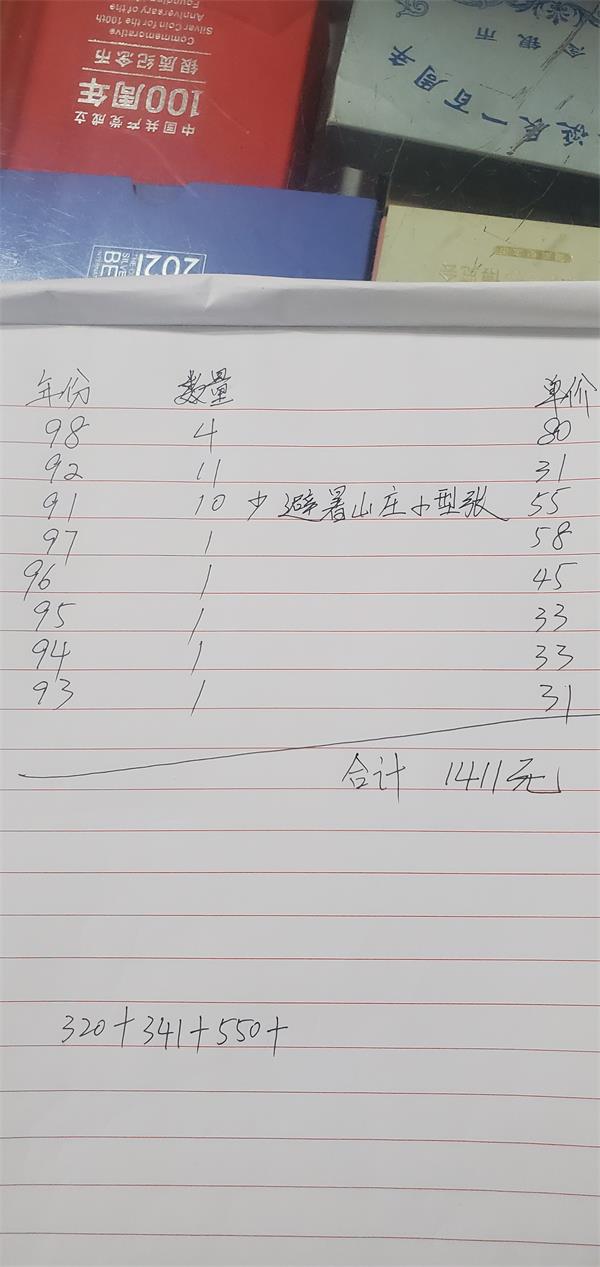 中国共产党成立
100周年
银质纪念币
Commemorative
Silver Coin for the 100th
Anniversary of the
Founding
诞辰一百周年
银币
2021
年份 数量 单价
98 4 80
92 11 31
91 10 少避暑山庄小型张 55
97 1 58
96 1 45
95 1 33
94 1 33
93 1 31
合计 1411元
320+341+550+